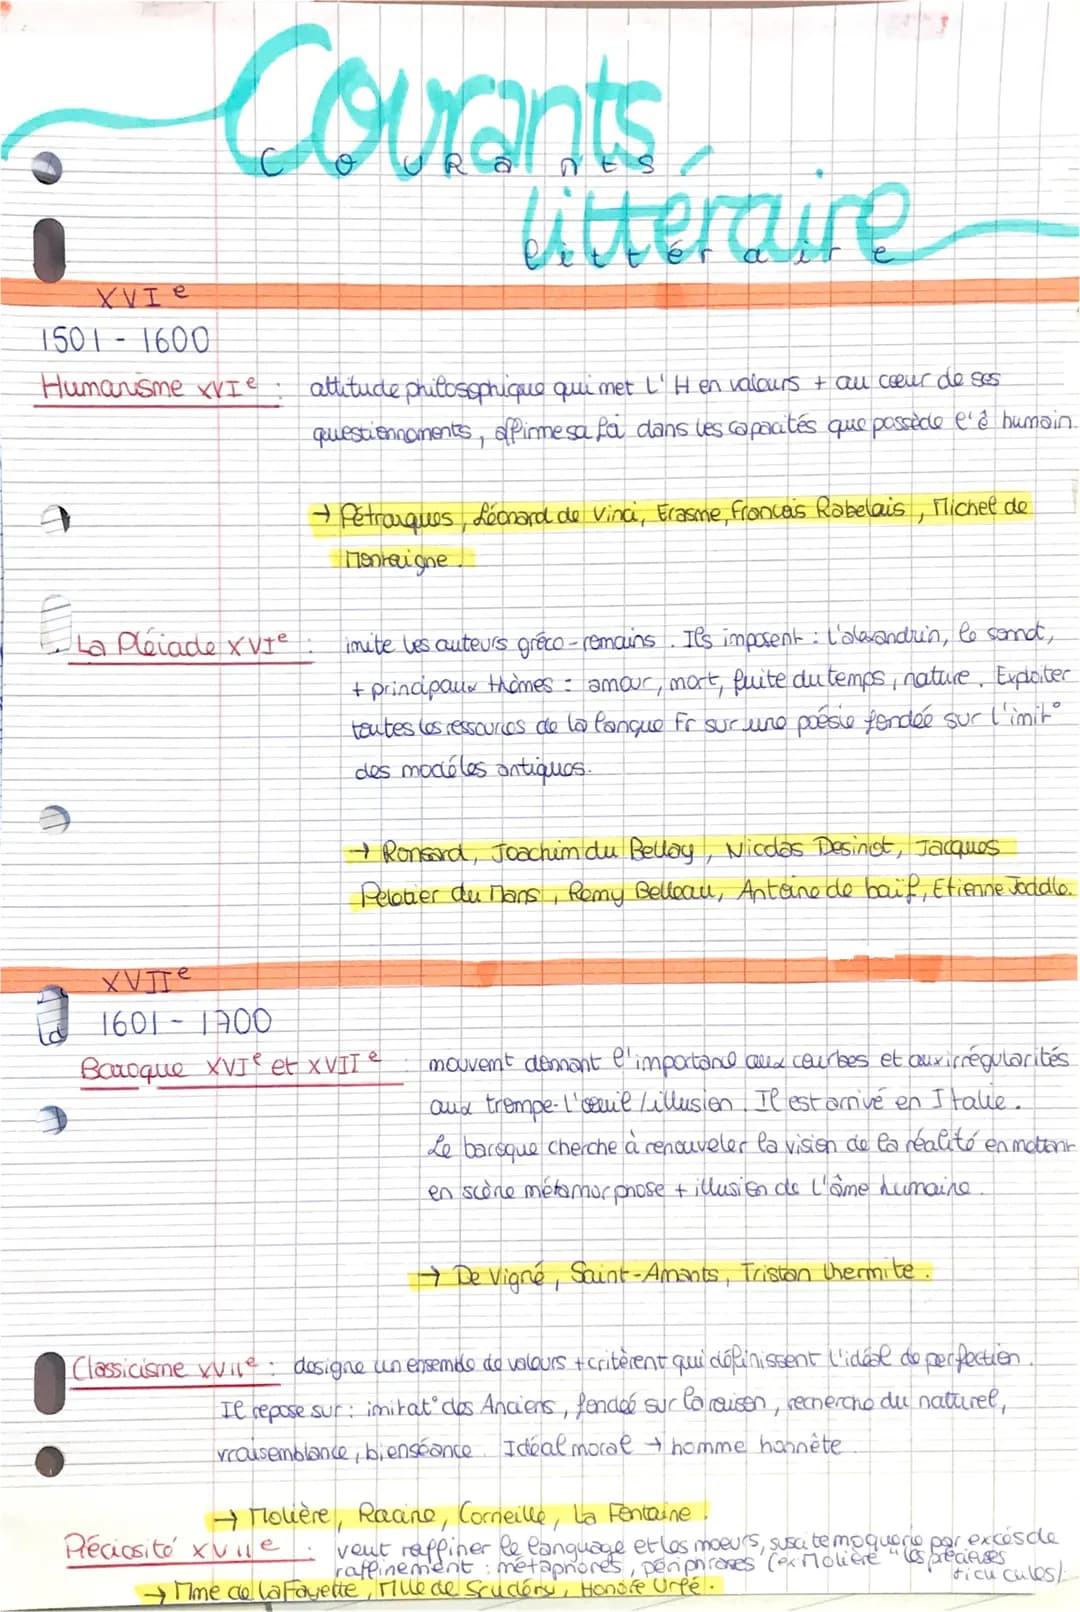 Courants
C O U R a n t s
littéraire
l i t t é r a i r e
XVIe
1501 - 1600
Humanisme XVIe : attitude philosophique qui met l'H en valeurs + au cœur de ses
questionnoments, affirme sa foi dans les capacités que possède l'ê humain.
→ Pétrarques, Léonard de Vinci, Erasme, Francois Rabelais, Michel de
Montaigne.
La Pléiade XVIe : imite les auteurs gréco-romains. Ils imposent : l'alexandrin, le sonnet,
+ principaux thèmes : amour, mort, fuite du temps, nature. Exploiter
toutes les ressources de la langue Fr sur une poésie fondée sur l'imit°
des modèles antiques.
→ Ronsard, Joachim du Bellay, Nicolas Desinot, Jacques
Peletier du Mans, Remy Belleau, Antoine de baïf, Etienne Joddle.
XVIIe
1601 - 1700
Baroque XVIe et XVIIe : mouvent donnant l'importance aux courbes et aux irrégularités
aux trompe-l'oeuil / illusion. Il est arrivé en Italie.
Le baroque cherche à renouveler la vision de la réalité en mettant
en scène métamorphose + illusion de l'âme humaine.
→ De Vigné, Saint-Amants, Tristan lhermite.
Classicisme XVIIe : designe un ensemble de valeurs + critèrent qui définissent l'idéal de perfection.
Il repose sur : imitat° des Anciens, fondée sur la raison, recherche du naturel,
vraisemblance, bienséance. Idéal moral → homme honnête
→ Molière, Racine, Corneille, La Fontaine.
Préciosité XVIIe : veut raffiner le language et les moeurs, suscite moquerie par excès de
raffinement : métaphores, périphrases (ex Molière "les précieuses
ridicules)
→ Mme de La Fayette, Mlle de Scudéry, Honoré Urfé.